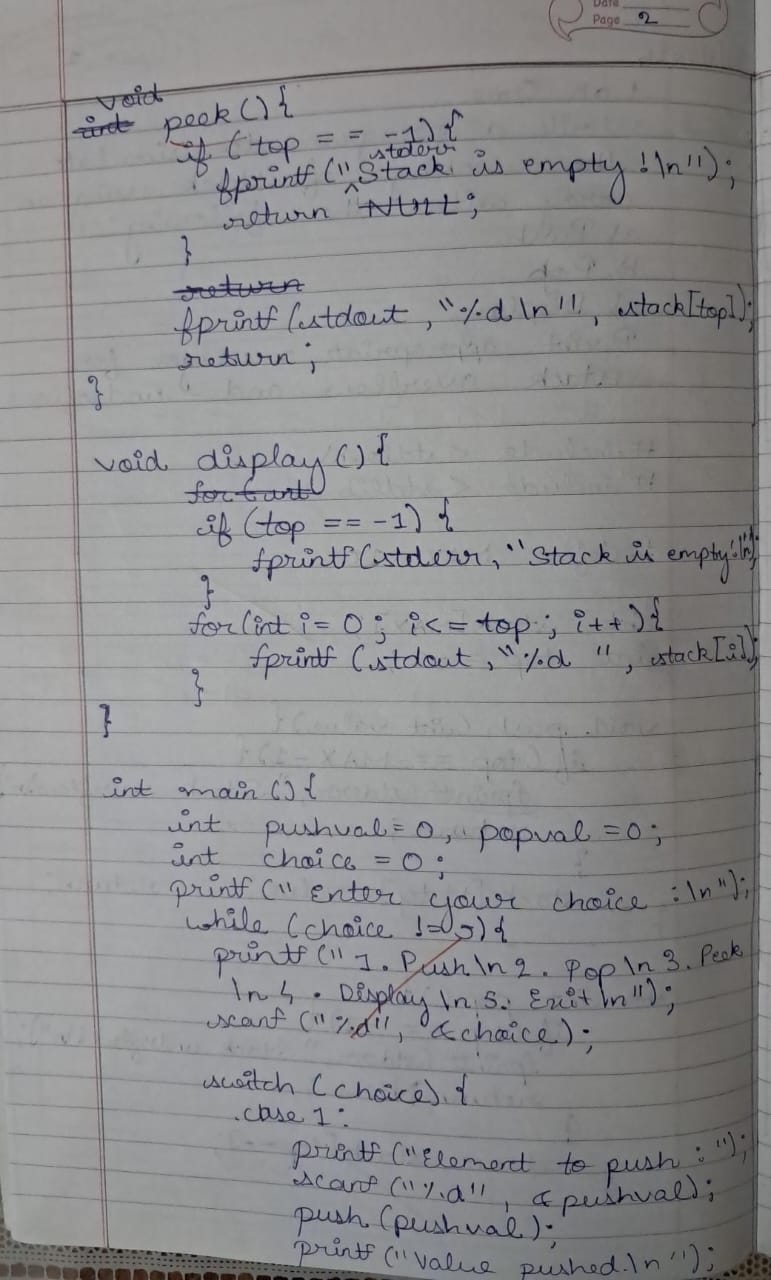 Date
Page 2
void
int peek () {
if (top == -1) {
stderr
fprintf ("Stack is empty !\n");
return NULL;
}
return
fprintf (stdout, "%d \n", stack[top]);
return;
}
void display () {
for (int
if (top == -1) {
fprintf (stderr, "Stack is empty!\n");
}
for (int i = 0; i <= top; i++) {
fprintf (stdout, "%d ", stack[i]);
}
}
int main () {
int pushval = 0, popval = 0;
int choice = 0;
printf (" Enter your choice :\n");
while (choice != 5) {
printf (" 1. Push \n 2. Pop \n 3. Peek
\n 4. Display \n 5. Exit \n");
scanf ("%d", &choice);
switch (choice) {
case 1:
printf ("Element to push : ");
scanf ("%d", &pushval);
push (pushval);
printf ("Value pushed.\n");